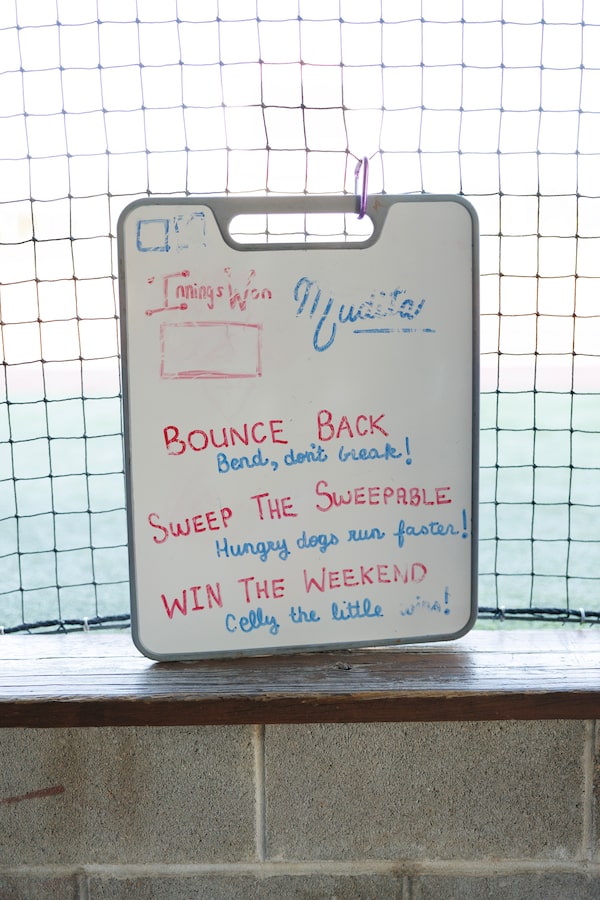 "Innings Won
Mudita
BOUNCE BACK
Bend, don't break!
SWEEP THE SWEEPABLE
Hungry dogs run faster!
WIN THE WEEKEND
Celly the little wins!